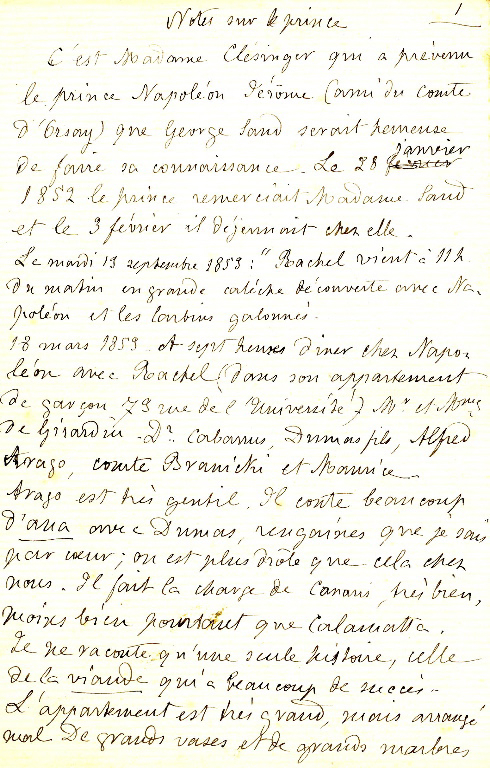 1
Notes sur le prince
C'est Madame Clésinger qui a prévenu
le prince Napoléon Jérôme (ami du comte
d'Orsay) que George Sand serait heureuse
de faire sa connaissance. Le 28 janvier février
1852 le prince remerciait Madame Sand
et le 3 février il déjeunait chez elle.
Le mardi 13 septembre 1853 : "Rachel vient à 11 h.
du matin en grande calèche découverte avec Na-
poléon et les larbins galonnés.
18 mars 1859 A sept heures diner chez Napo-
léon avec Rachel (dans son appartement
de garçon 73 rue de l'Université) Mr et Mme
de Girardin. Dr. Cabarrus, Dumas fils, Alfred
Arago, comte Branicki et Maurice.
Arago est très gentil. Il conte beaucoup
d'ana avec Dumas, rengaines que je sais
par cœur ; on est plus drôle que cela chez
nous. Il fait la charge de Canaris, très bien,
moins bien pourtant que Calamatta.
Je ne raconte qu'une seule histoire, celle
de la viande qui a beaucoup de succès.
L'appartement est très grand, mais arrangé
mal De grands vases et de grands marbres